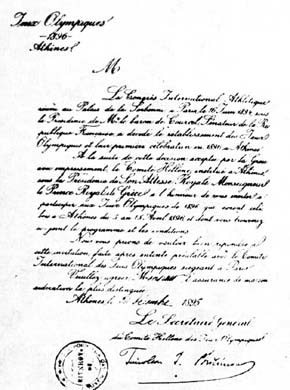 Jeux Olympiques
-1896-
Athènes
M
Le Congrès International Athlétique
réuni au Palais de la Sorbonne à Paris le 16 Juin 1894 sous
la Présidence de Mr le baron de Courcel Sénateur de la Ré
publique Française a décidé le rétablissement des Jeux
Olympiques et leur première célébration en 1896 à Athènes
A la suite de cette décision acceptée par la Grèce
avec empressement, le Comité Hellène institué à Athènes
sous la Présidence de Son Altesse Royale Monseigneur
le Prince Royal de Grèce a l'honneur de vous inviter à
participer aux Jeux Olympiques de 1896 qui seront célé
brés à Athènes du 5 au 15 Avril 1896 et dont vous trouverez
ci joint le programme et les conditions
Nous vous prions de vouloir bien répondre à
cette invitation faite après entente préalable avec le Comité
International des Jeux Olympiques siégeant à Paris
Veuillez agréer l'assurance de ma
considération la plus distinguée
Athènes le 1895
Le Secrétaire Général
du Comité Hellène des Jeux Olympiques